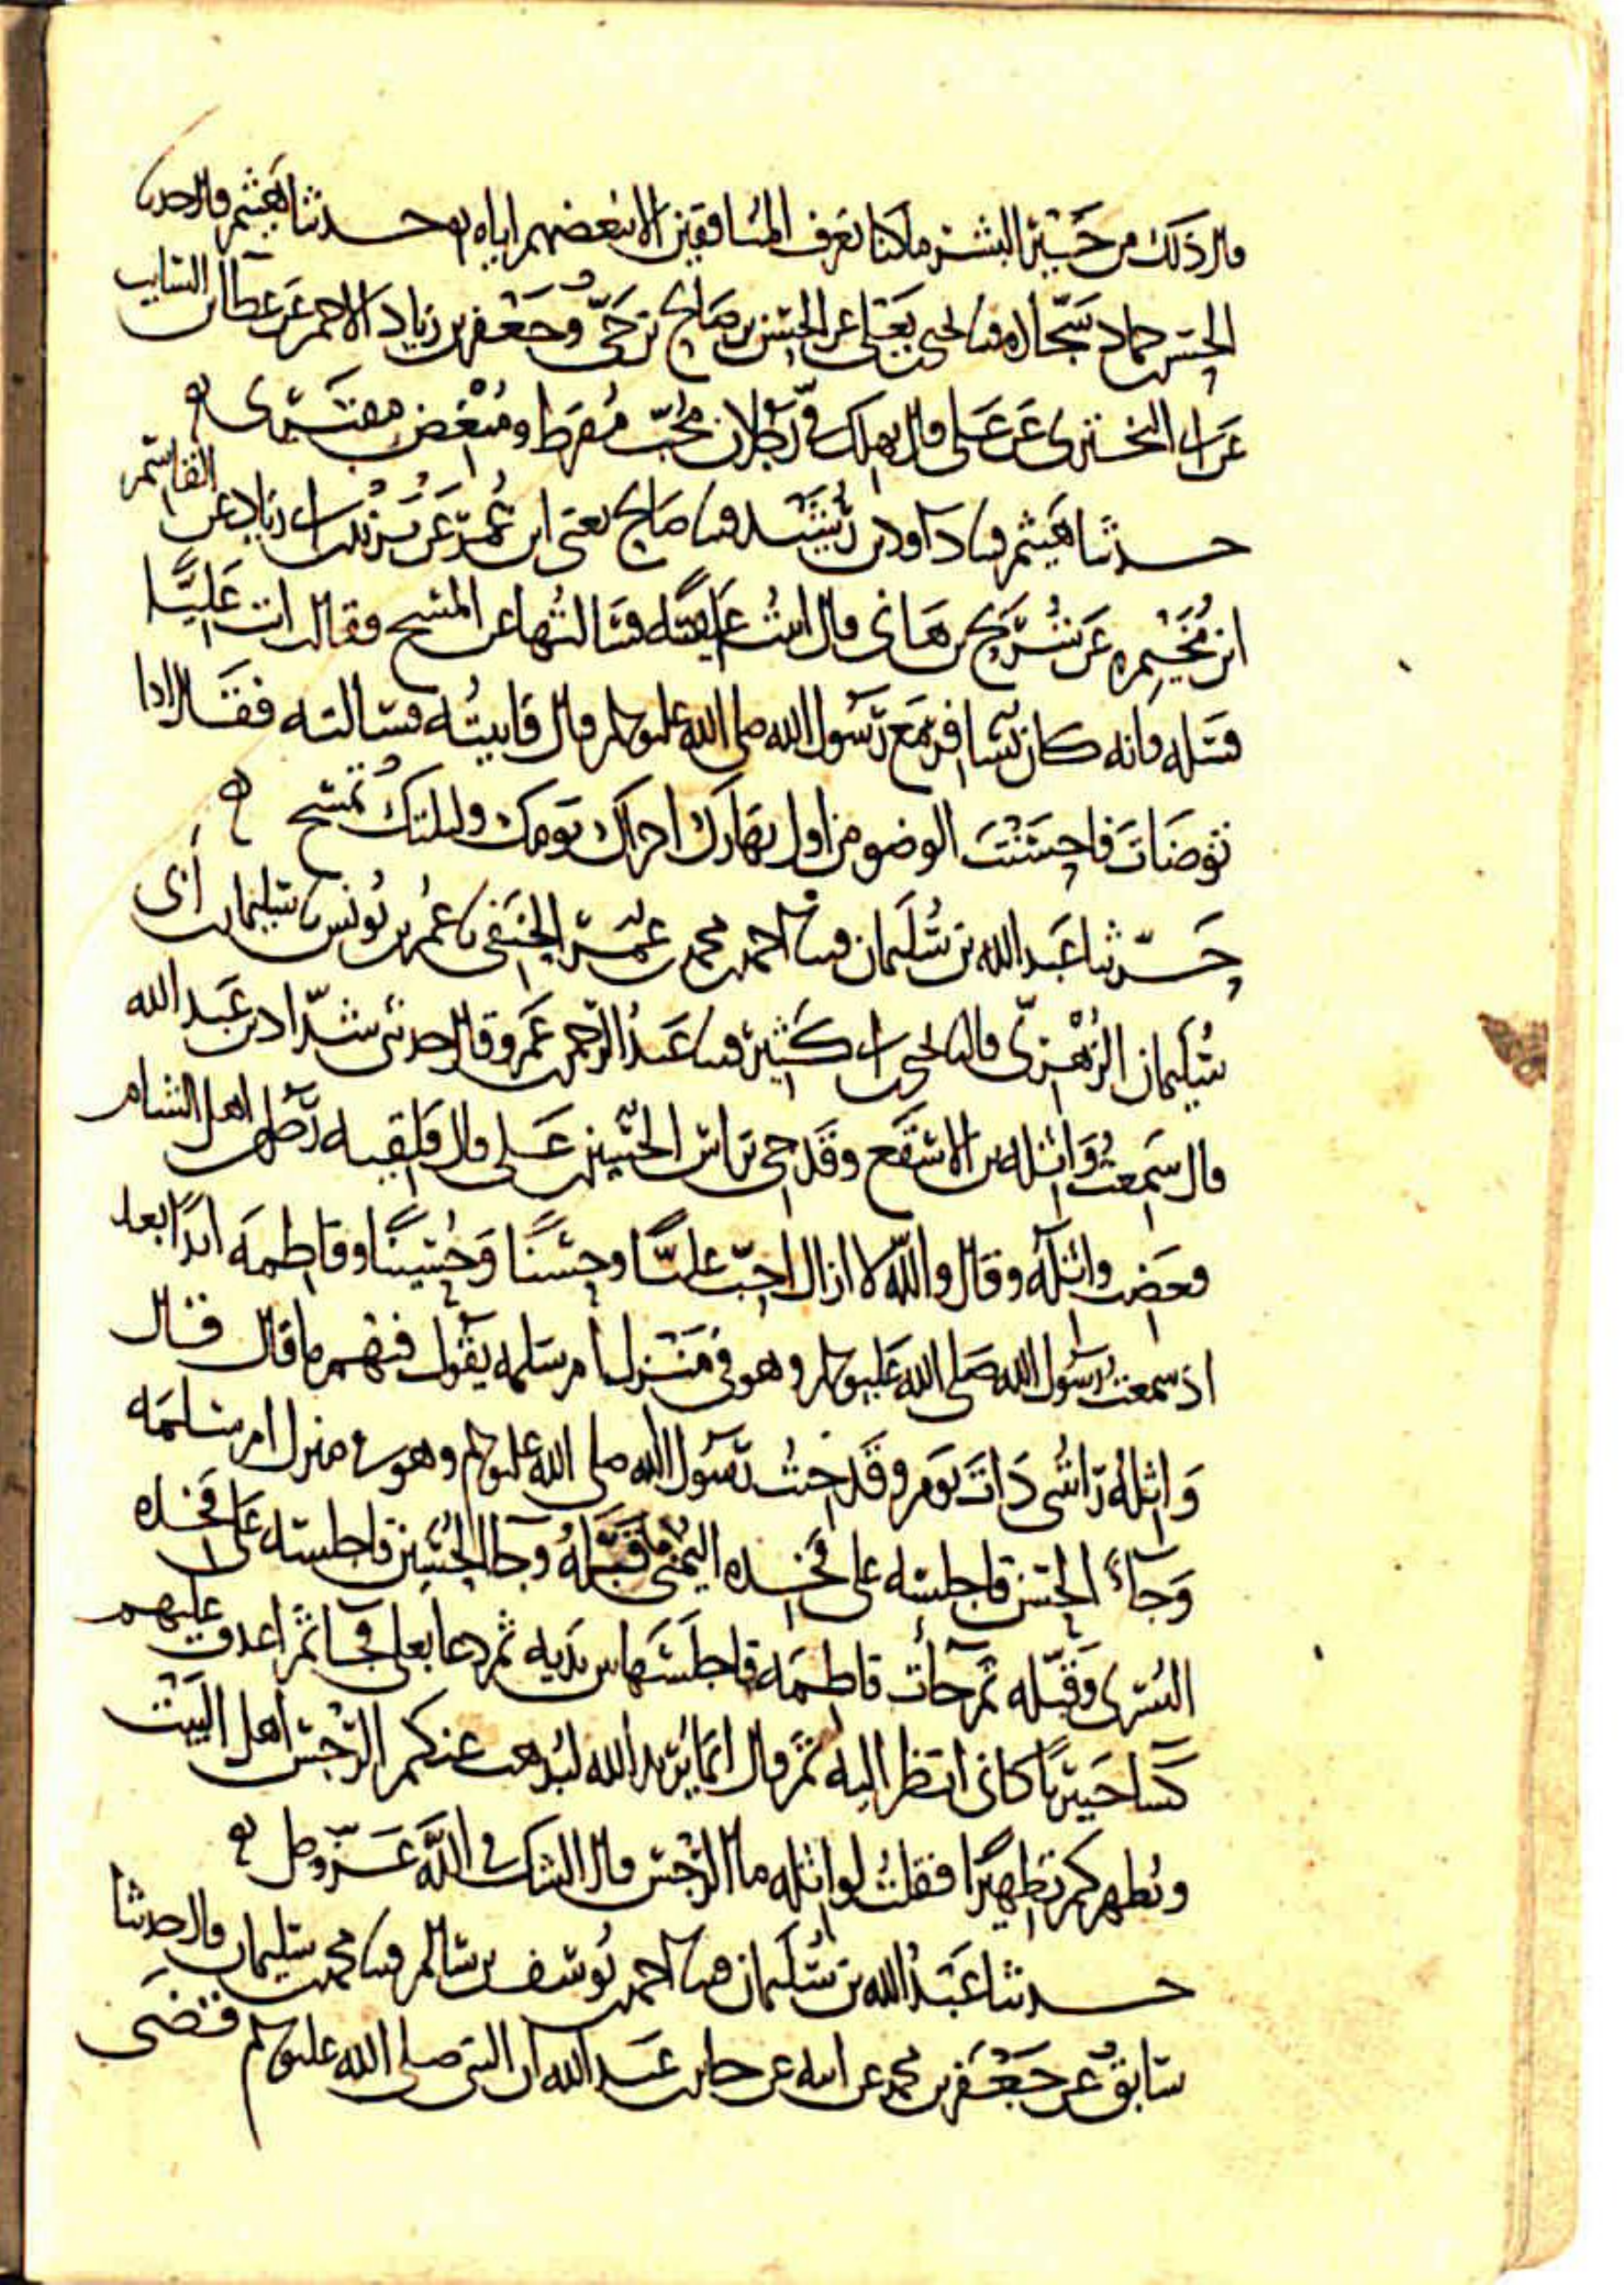 قال ذلك من خير البشر ما كنا نعرف المنافقين الا ببغضهم اياه حدثنا هيثم قال حدثنا
الحسن بن حماد سجاده قثنا يحيى بن يعلى عن الحسن بن صالح بن حي وجعفر بن زياد الاحمر عن عطا بن السايب
عن ابي البختري عن علي قال يهلك في رجلان محب مفرط ومبغض مفتري
حدثنا هيثم قثنا داود بن رشيد قثنا صالح يعني ابن عمر عن يزيد بن ابي زياد عن القاسم
ابن مخيمره عن شريح بن هاني قال اتيت عايشة فسالتها عن المسح فقالت ات عليا
فسله فانه كان يسافر مع رسول الله صلى الله عليه وسلم قال فاتيته فسالته فقال اذا
توضات فاحسنت الوضو من اول نهارك اجزاك يومك وليلتك تمسح
حدثنا عبد الله بن سليمان قثنا احمد بن محمد بن عمر الحنفي نا عمر بن يونس نا سليمان بن ابي
سليمان الزهري قال نا يحيى بن ابي كثير قثنا عبد الرحمن بن عمرو قال حدثني شداد بن عبد الله
قال سمعت واثله بن الاسقع وقد جي براس الحسين بن علي قال فلقيه رجل من اهل الشام
فغضب واثلة وقال والله لا ازال احب عليا وحسنا وحسينا وفاطمة ابدا بعد
اذ سمعت رسول الله صلى الله عليه وسلم وهو في منزل ام سلمه يقول فيهم ما قال قال
واثلة رايتني ذات يوم وقد جيت رسول الله صلى الله عليه وسلم وهو في منزل ام سلمه
وجاء الحسن فاجلسه على فخذه اليمنى وقبله وجا الحسين فاجلسه على فخذه
اليسرى وقبله ثم جات فاطمه فاجلسها بين يديه ثم دعا بعلي فجا ثم اغدق عليهم
كسا خيبريا كاني انظر اليه ثم قال انما يريد الله ليذهب عنكم الرجس اهل البيت
ويطهركم تطهيرا فقلت لواثله ما الرجس قال الشك في الله عز وجل
حدثنا عبد الله بن سليمان قثنا احمد بن يوسف بن سالم قثنا محمد بن سليمان قال حدثنا
سابق عن جعفر بن محمد عن ابيه عن جابر بن عبد الله ان النبي صلى الله عليه وسلم قضى